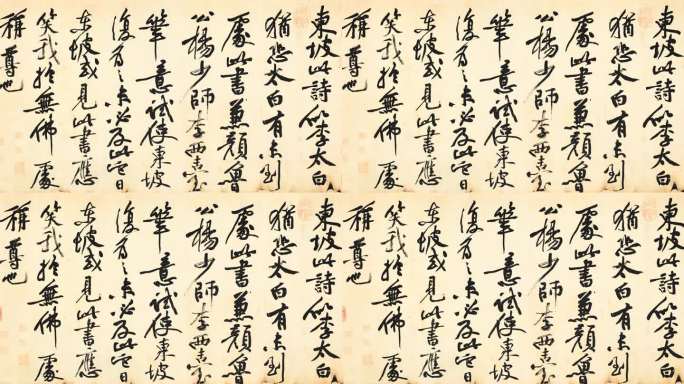 東坡此詩似李太白
猶恐太白有未到
處此書兼顏魯
公楊少師李西臺
筆意試使東坡
復為之未必及此它日
東坡或見此書應
笑我於無佛處
稱尊也
東坡此詩似李太白
猶恐太白有未到
處此書兼顏魯
公楊少師李西臺
筆意試使東坡
復為之未必及此它日
東坡或見此書應
笑我於無佛處
稱尊也
東坡此詩似李太白
猶恐太白有未到
處此書兼顏魯
公楊少師李西臺
筆意試使東坡
復為之未必及此它日
東坡或見此書應
笑我於無佛處
稱尊也
東坡此詩似李太白
猶恐太白有未到
處此書兼顏魯
公楊少師李西臺
筆意試使東坡
復為之未必及此它日
東坡或見此書應
笑我於無佛處
稱尊也